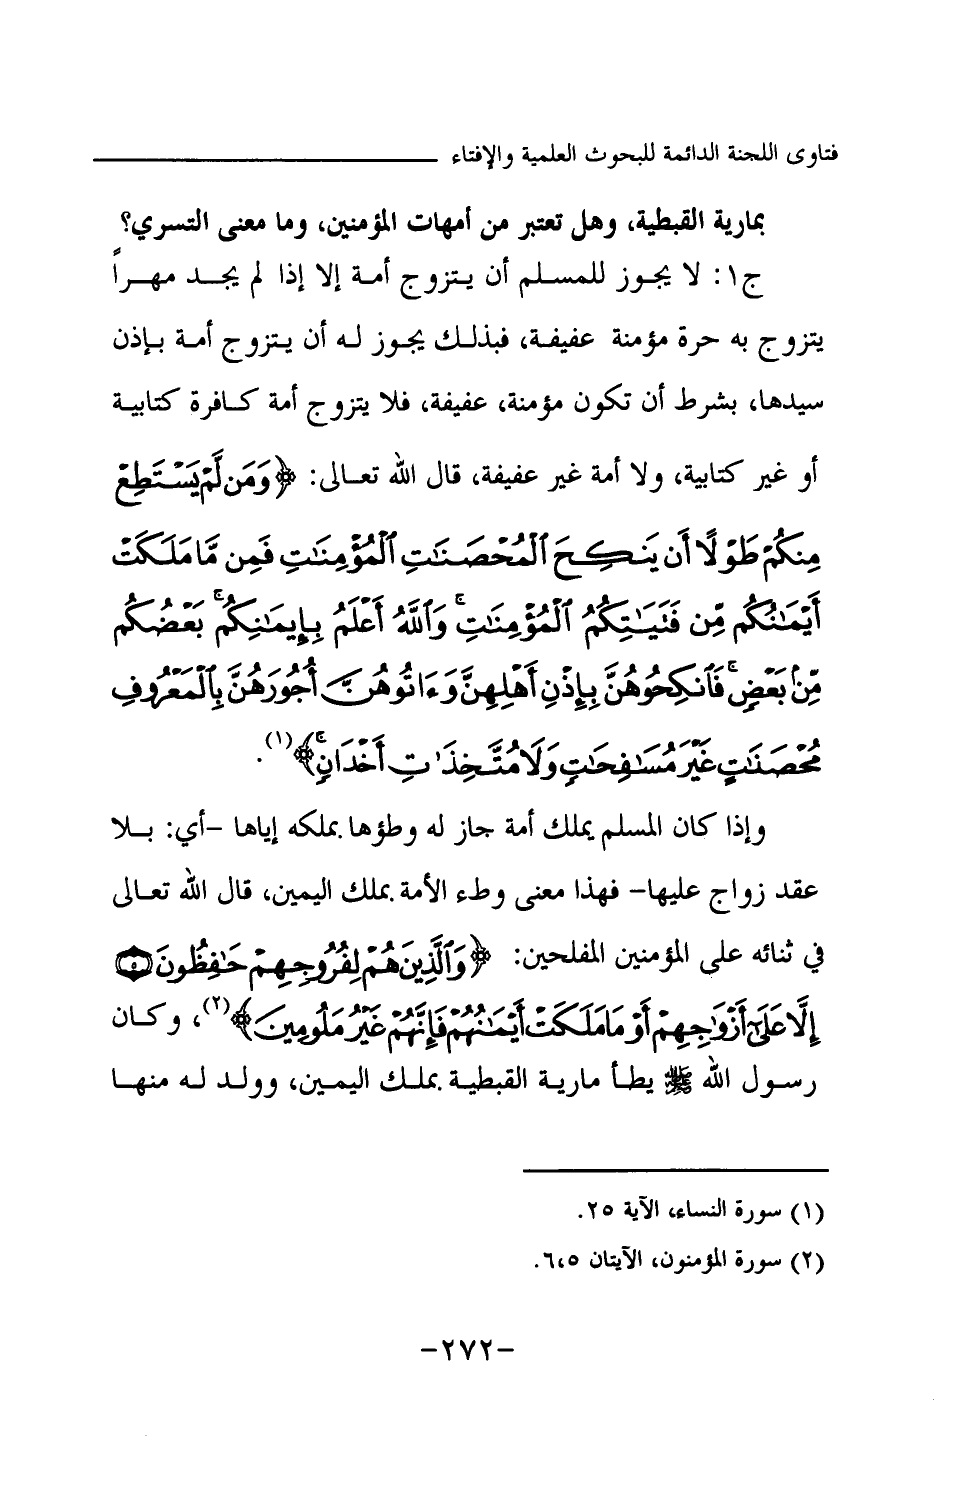 فتاوى اللجنة الدائمة للبحوث العلمية والإفتاء
بمارية القبطية، وهل تعتبر من أمهات المؤمنين، وما معنى التسري؟
ج١: لا يجوز للمسلم أن يتزوج أمة إلا إذا لم يجد مهراً
يتزوج به حرة مؤمنة عفيفة، فبذلك يجوز له أن يتزوج أمة بإذن
سيدها، بشرط أن تكون مؤمنة، عفيفة، فلا يتزوج أمة كافرة كتابية
أو غير كتابية، ولا أمة غير عفيفة، قال الله تعالى: ﴿وَمَن لَّمْ يَسْتَطِعْ
مِنكُمْ طَوْلًا أَن يَنكِحَ ٱلْمُحْصَنَٰتِ ٱلْمُؤْمِنَٰتِ فَمِن مَّا مَلَكَتْ
أَيْمَٰنُكُم مِّن فَتَيَٰتِكُمُ ٱلْمُؤْمِنَٰتِ ۚ وَٱللَّهُ أَعْلَمُ بِإِيمَٰنِكُم ۚ بَعْضُكُم
مِّنۢ بَعْضٍ ۚ فَٱنكِحُوهُنَّ بِإِذْنِ أَهْلِهِنَّ وَءَاتُوهُنَّ أُجُورَهُنَّ بِٱلْمَعْرُوفِ
مُحْصَنَٰتٍ غَيْرَ مُسَٰفِحَٰتٍ وَلَا مُتَّخِذَٰتِ أَخْدَانٍ ۚ﴾(١).
وإذا كان المسلم يملك أمة جاز له وطؤها بملكه إياها -أي: بلا
عقد زواج عليها- فهذا معنى وطء الأمة بملك اليمين، قال الله تعالى
في ثنائه على المؤمنين المفلحين: ﴿وَٱلَّذِينَ هُمْ لِفُرُوجِهِمْ حَٰفِظُونَ ٥
إِلَّا عَلَىٰٓ أَزْوَٰجِهِمْ أَوْ مَا مَلَكَتْ أَيْمَٰنُهُمْ فَإِنَّهُمْ غَيْرُ مَلُومِينَ﴾(٢)، وكان
رسول الله ﷺ يطأ مارية القبطية بملك اليمين، وولد له منها
(١) سورة النساء، الآية ٢٥.
(٢) سورة المؤمنون، الآيتان ٥،٦.
-٢٧٢-